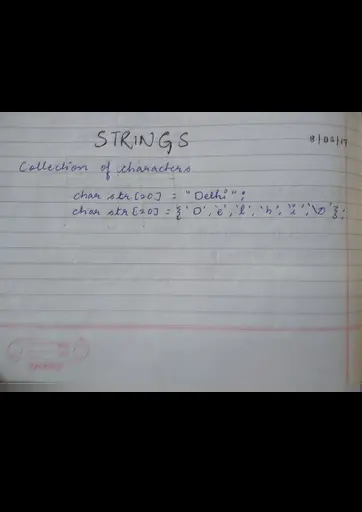 STRINGS
Collection of characters
char str[20] = "Delhi";
char str[20] = {'D','e','l','h','i','\0'};